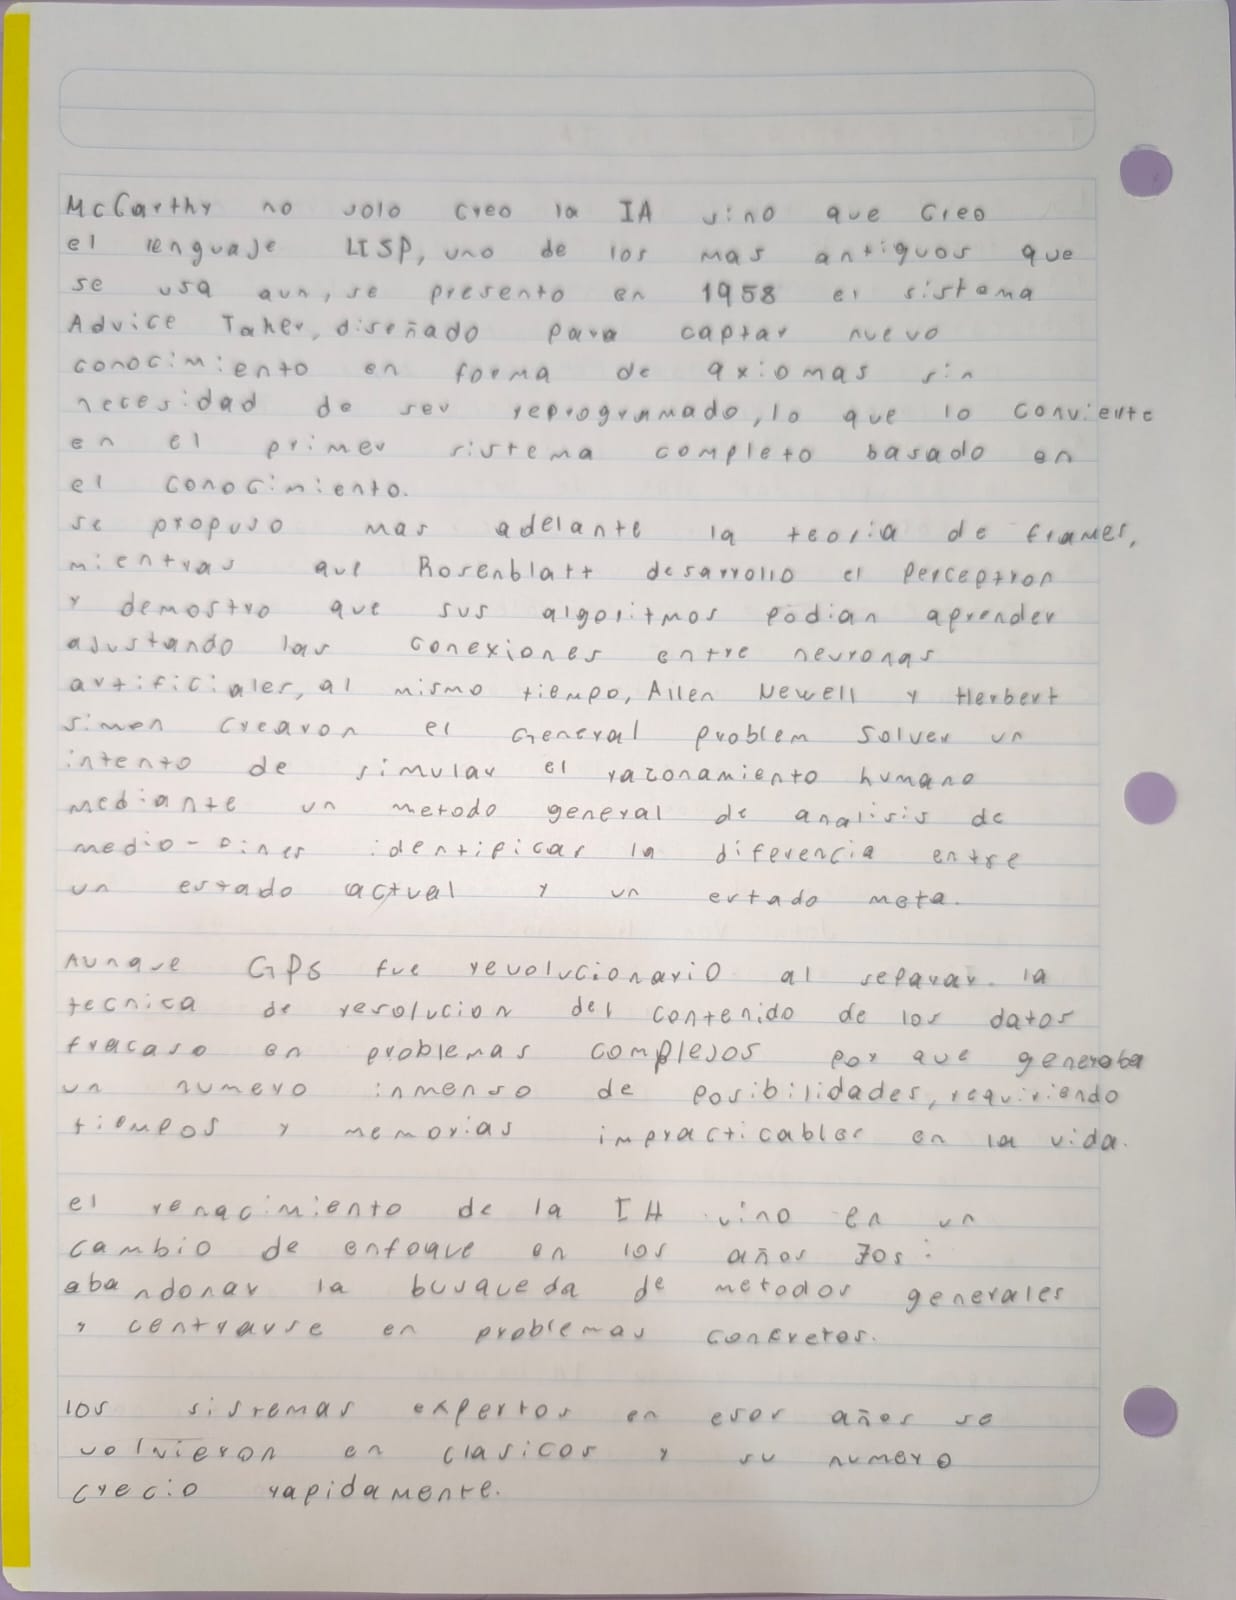 McCarthy no solo creo la IA sino que creo
el lenguaje LISP, uno de los mas antiguos que
se usa aun, se presento en 1958 el sistema
Advice Taker, diseñado para captar nuevo
conocimiento en forma de axiomas sin
necesidad de ser reprogramado, lo que lo convierte
en el primer sistema completo basado en
el conocimiento.
se propuso mas adelante la teoria de frames,
mientras que Rosenblatt desarrollo el perceptron
y demostro que sus algoritmos podian aprender
ajustando las conexiones entre neuronas
artificiales, al mismo tiempo, Allen Newell y Herbert
simon crearon el General problem solver un
intento de simular el razonamiento humano
mediante un metodo general de analisis de
medio-fines identificar la diferencia entre
un estado actual y un estado meta.
Aunque GPS fue revolucionario al separar la
tecnica de resolucion del contenido de los datos
fracaso en problemas complejos por que generaba
un numero inmenso de posibilidades, requiriendo
tiempos y memorias impracticables en la vida.
el renacimiento de la IA vino en un
cambio de enfoque en los años 70s:
abandonar la busqueda de metodos generales
y centrarse en problemas concretos.
los sistemas expertos en esos años se
volvieron en clasicos y su numero
crecio rapidamente.